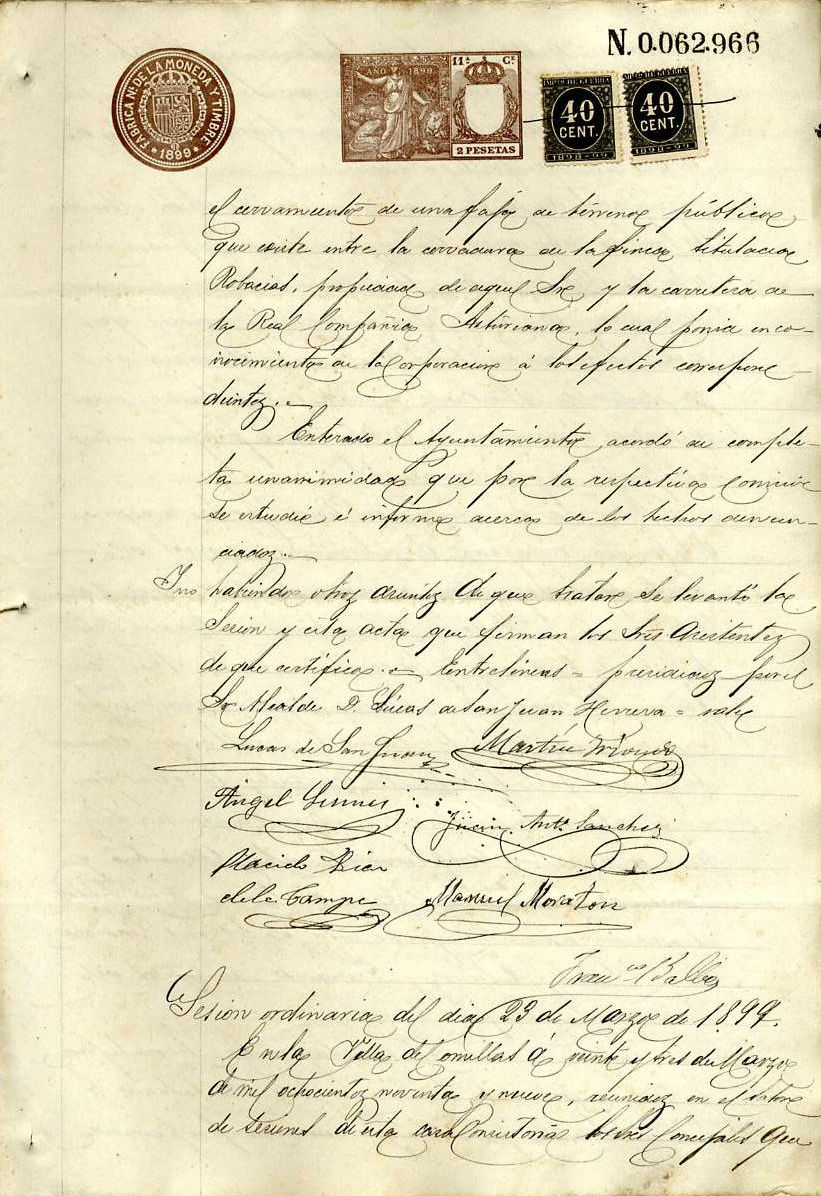 N. 0.062.966
FÁBRICA NAL DE LA MONEDA Y TIMBRE
1899
AÑO 1899
11ª Cª
2 PESETAS
IMPTO DE GUERRA
40
CENT.
1898-99
IMPTO DE GUERRA
40
CENT.
1898-99
el cerramiento de una faja de terreno público
que existe entre la cerradura de la finca titulada
Robacias, propiedad de aquel Sr y la carretera de
la Real Compañia Asturiana, lo cual ponia en co-
nocimiento de la Corporacion á los efectos correspon-
dientes.
Enterado el Ayuntamiento, acordó su comple-
ta unanimidad que por la respectiva Comision
se estudie é informe acerca de los hechos denun-
ciados.
Y no habiendo otros asuntos de que tratar se levantó la
Sesion y esta acta que firman los Sres Asistentes
de que certifico. Entrelineas = presididos por el
Sr Alcalde D. Lucas de San Juan Herrera = vale
Lucas de San Juan Martin
Angel
Juan Antº Sanchez
Placido Diaz
de la Campa Manuel Moraton
Francº Balbin
Sesion ordinaria del dia 23 de Marzo de 1899.
En la Villa de Comillas á veinte y tres de Marzo
de mil ochocientos noventa y nueve, reunidos en el Salon
de sesiones de esta casa Consistorial los Sres Concejales que